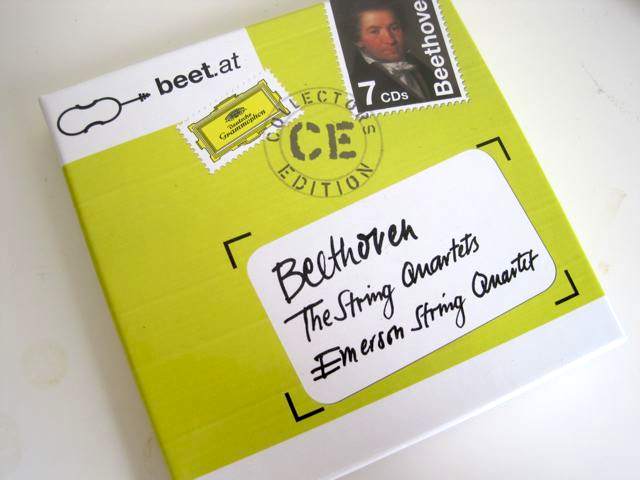 beet.at
Deutsche
Grammophon
7 CDs
Beethoven
COLLECTORS
CE
EDITION
Beethoven
The String Quartets
Emerson String Quartet